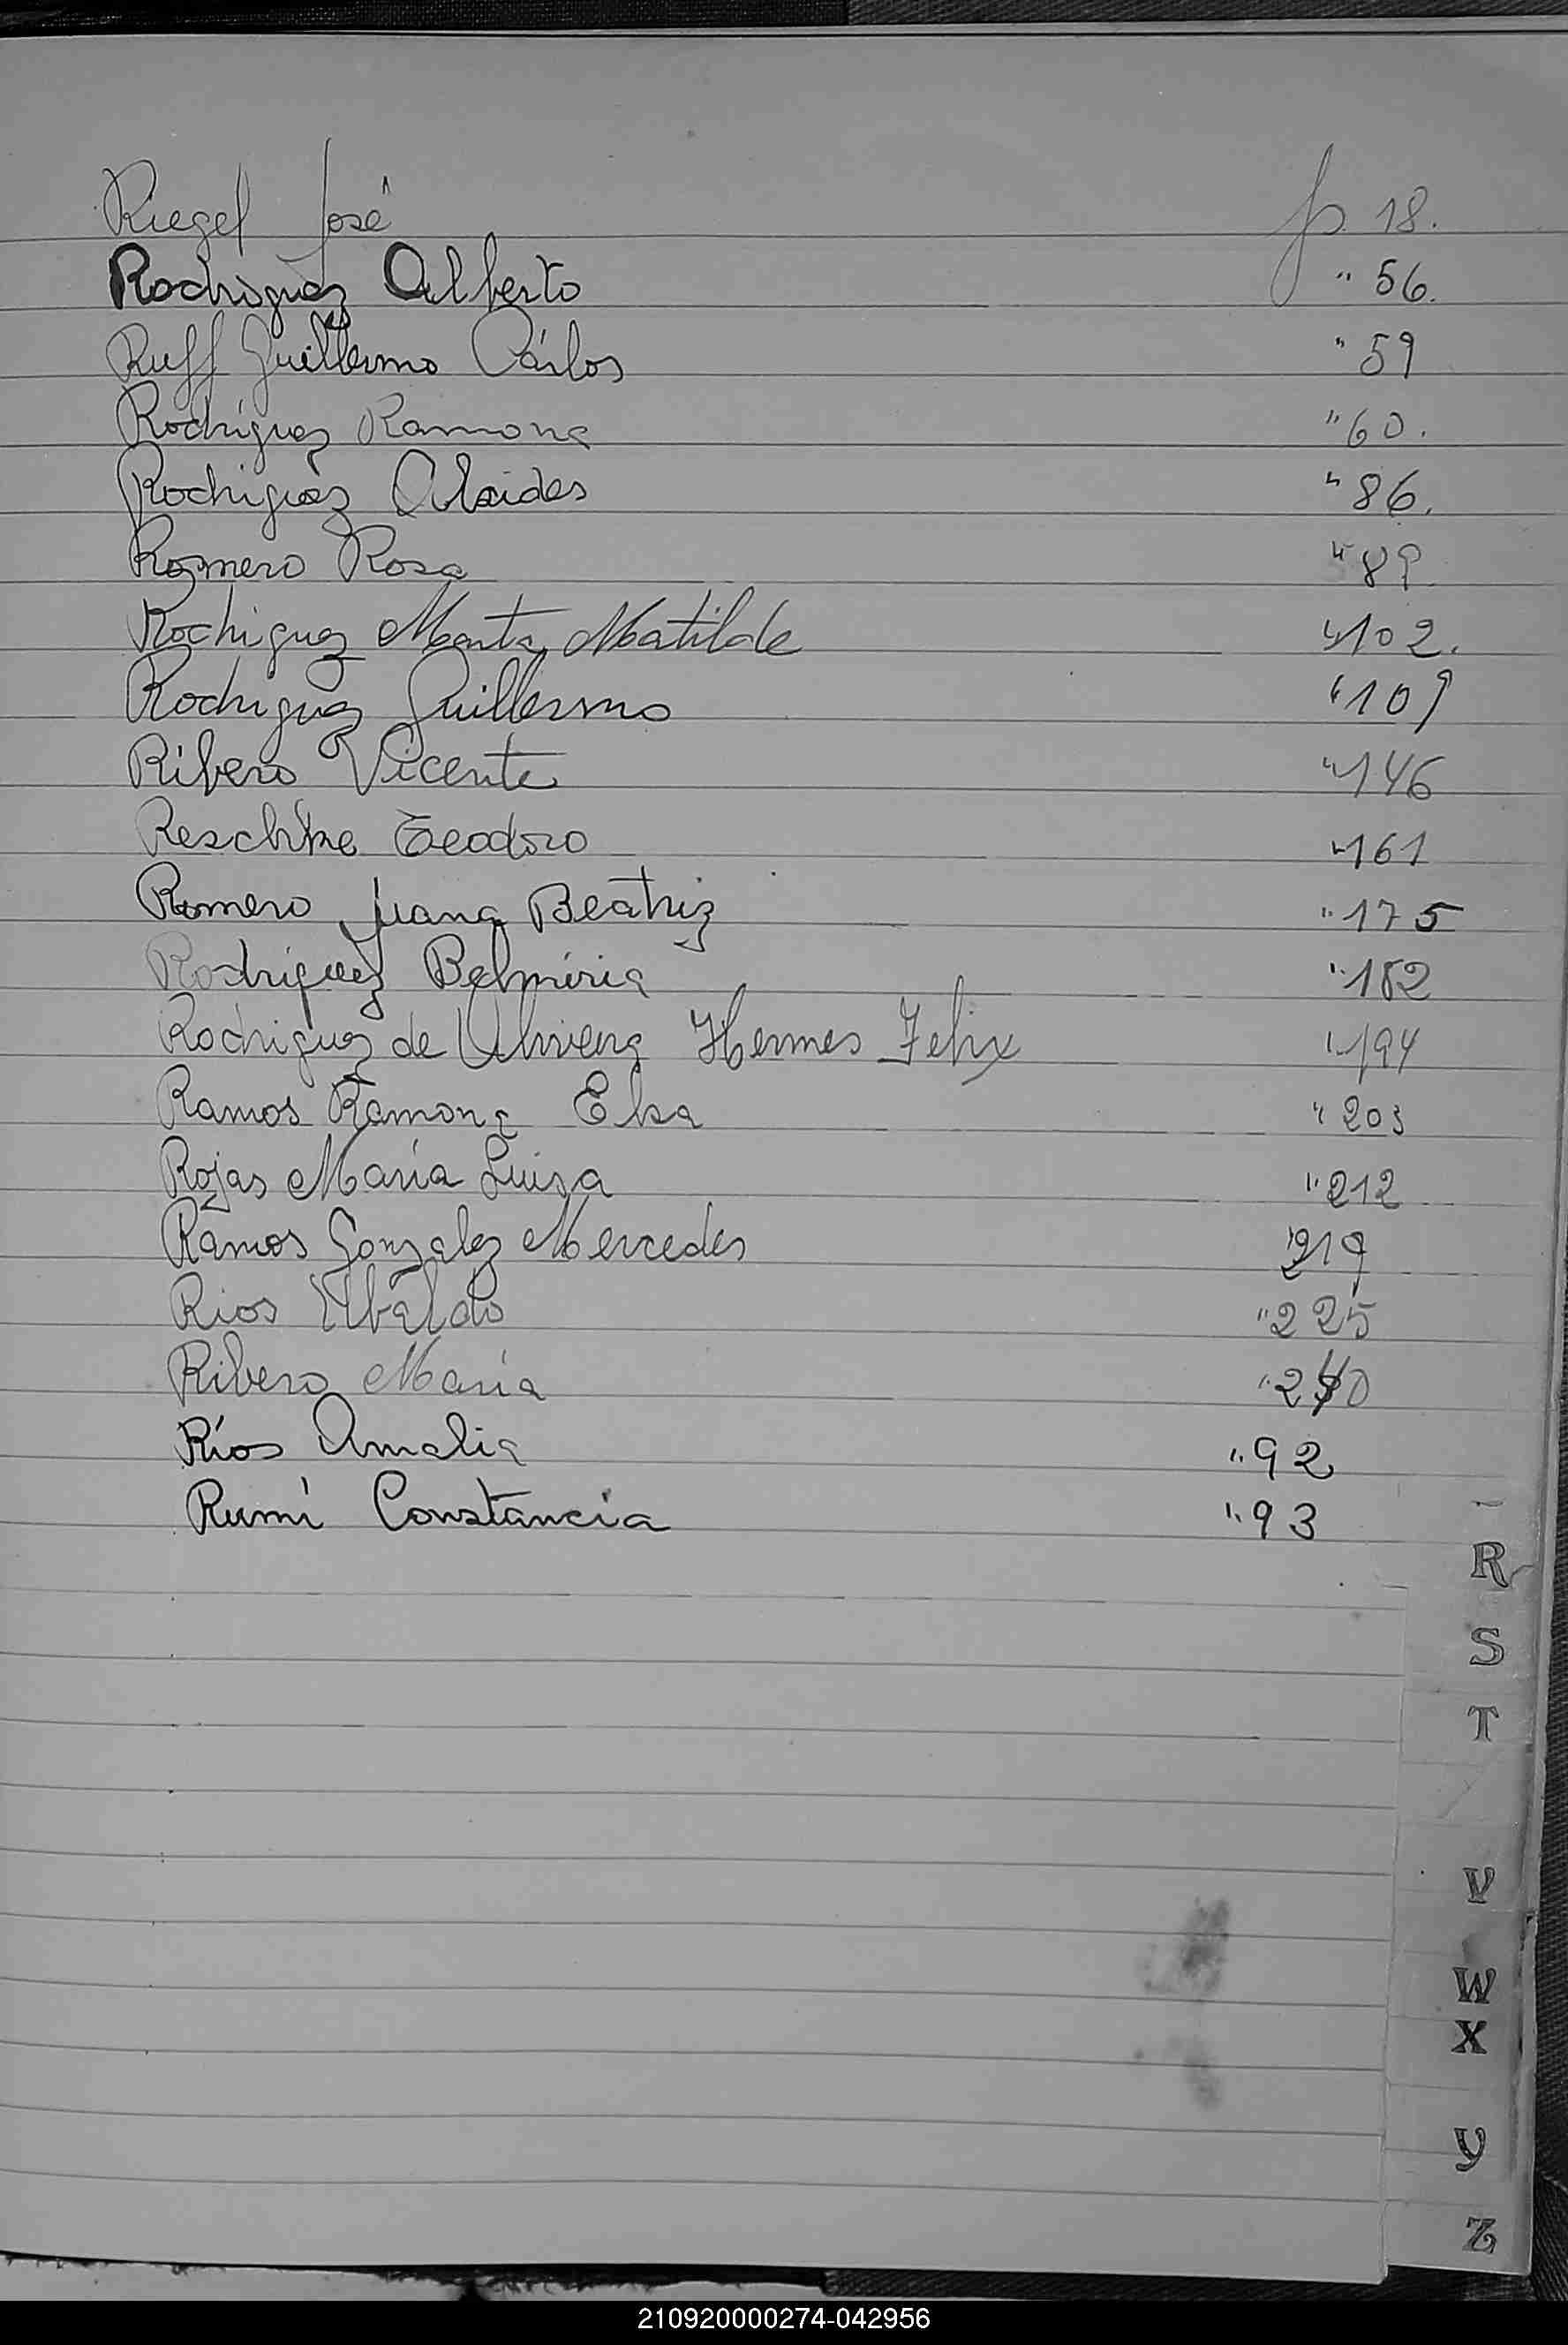 Riegel José p. 18.
Rodriguez Alberto " 56.
Ruff Guillermo Cárlos " 59
Rodríguez Ramona " 60.
Rodriguez Alcides " 86.
Romero Rosa " 89
Rodriguez Marta Matilde " 102.
Rodriguez Guillermo " 109
Ribero Vicente " 146
Reschke Teodoro " 161
Romero Juana Beatriz " 175
Rodriguez Belmiria " 182
Rodriguez de Oliveira Hermes Felix " 194
Ramos Ramona Elsa " 203
Rojas María Luisa " 212
Ramos Gonzalez Mercedes " 219
Rios Ubaldo " 225
Ribero María " 240
Ríos Amalia " 92
Rumí Constancia " 93
R
S
T
V
W
X
Y
Z
210920000274-042956